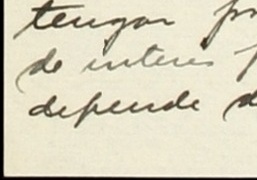 tengan
de interes
depende d